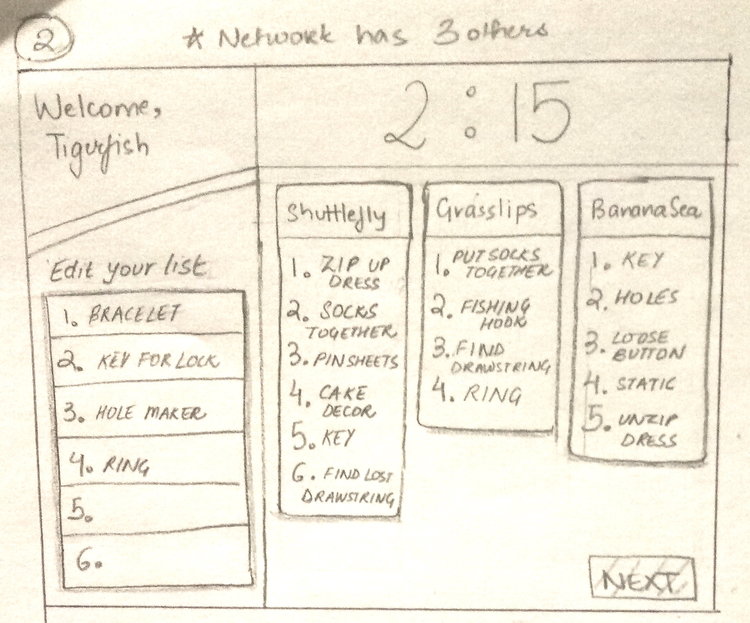 2
* Network has 3 others
Welcome,
Tigerfish
2:15
Edit your list
1. BRACELET
2. KEY FOR LOCK
3. HOLE MAKER
4. RING
5.
6.
Shuttlefly
1. ZIP UP
DRESS
2. SOCKS
TOGETHER
3. PIN SHEETS
4. CAKE
DECOR
5. KEY
6. FIND LOST
DRAWSTRING
Grasslips
1. PUT SOCKS
TOGETHER
2. FISHING
HOOK
3. FIND
DRAWSTRING
4. RING
BananaSea
1. KEY
2. HOLES
3. LOOSE
BUTTON
4. STATIC
5. UNZIP
DRESS
NEXT